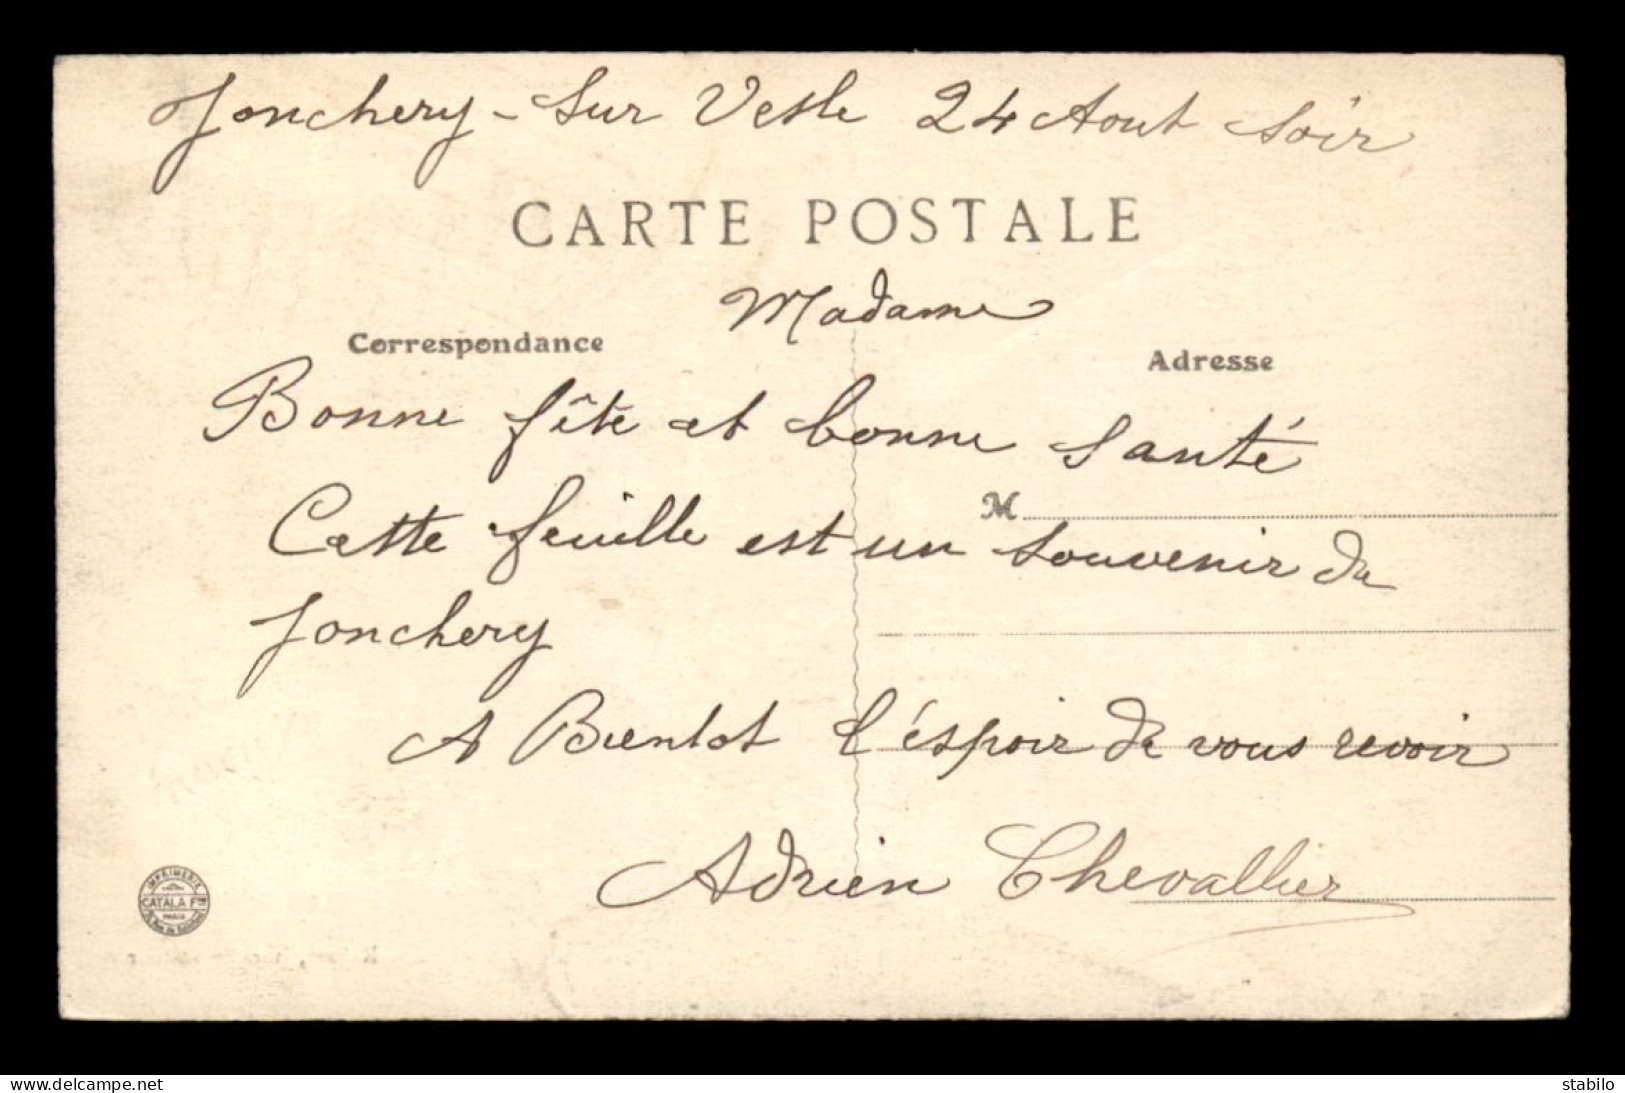 Jonchery - Sur Vesle 24 Aout Soir
CARTE POSTALE
Madame
Correspondance
Adresse
Bonne fête et bonne Santé
M
Cette feuille est un souvenir du
Jonchery
A Bientot l'éspoir de vous revoir
Adrien Chevallier
IMPRIMERIE
CATALA Frs
PARIS
www.delcampe.net
stabilo